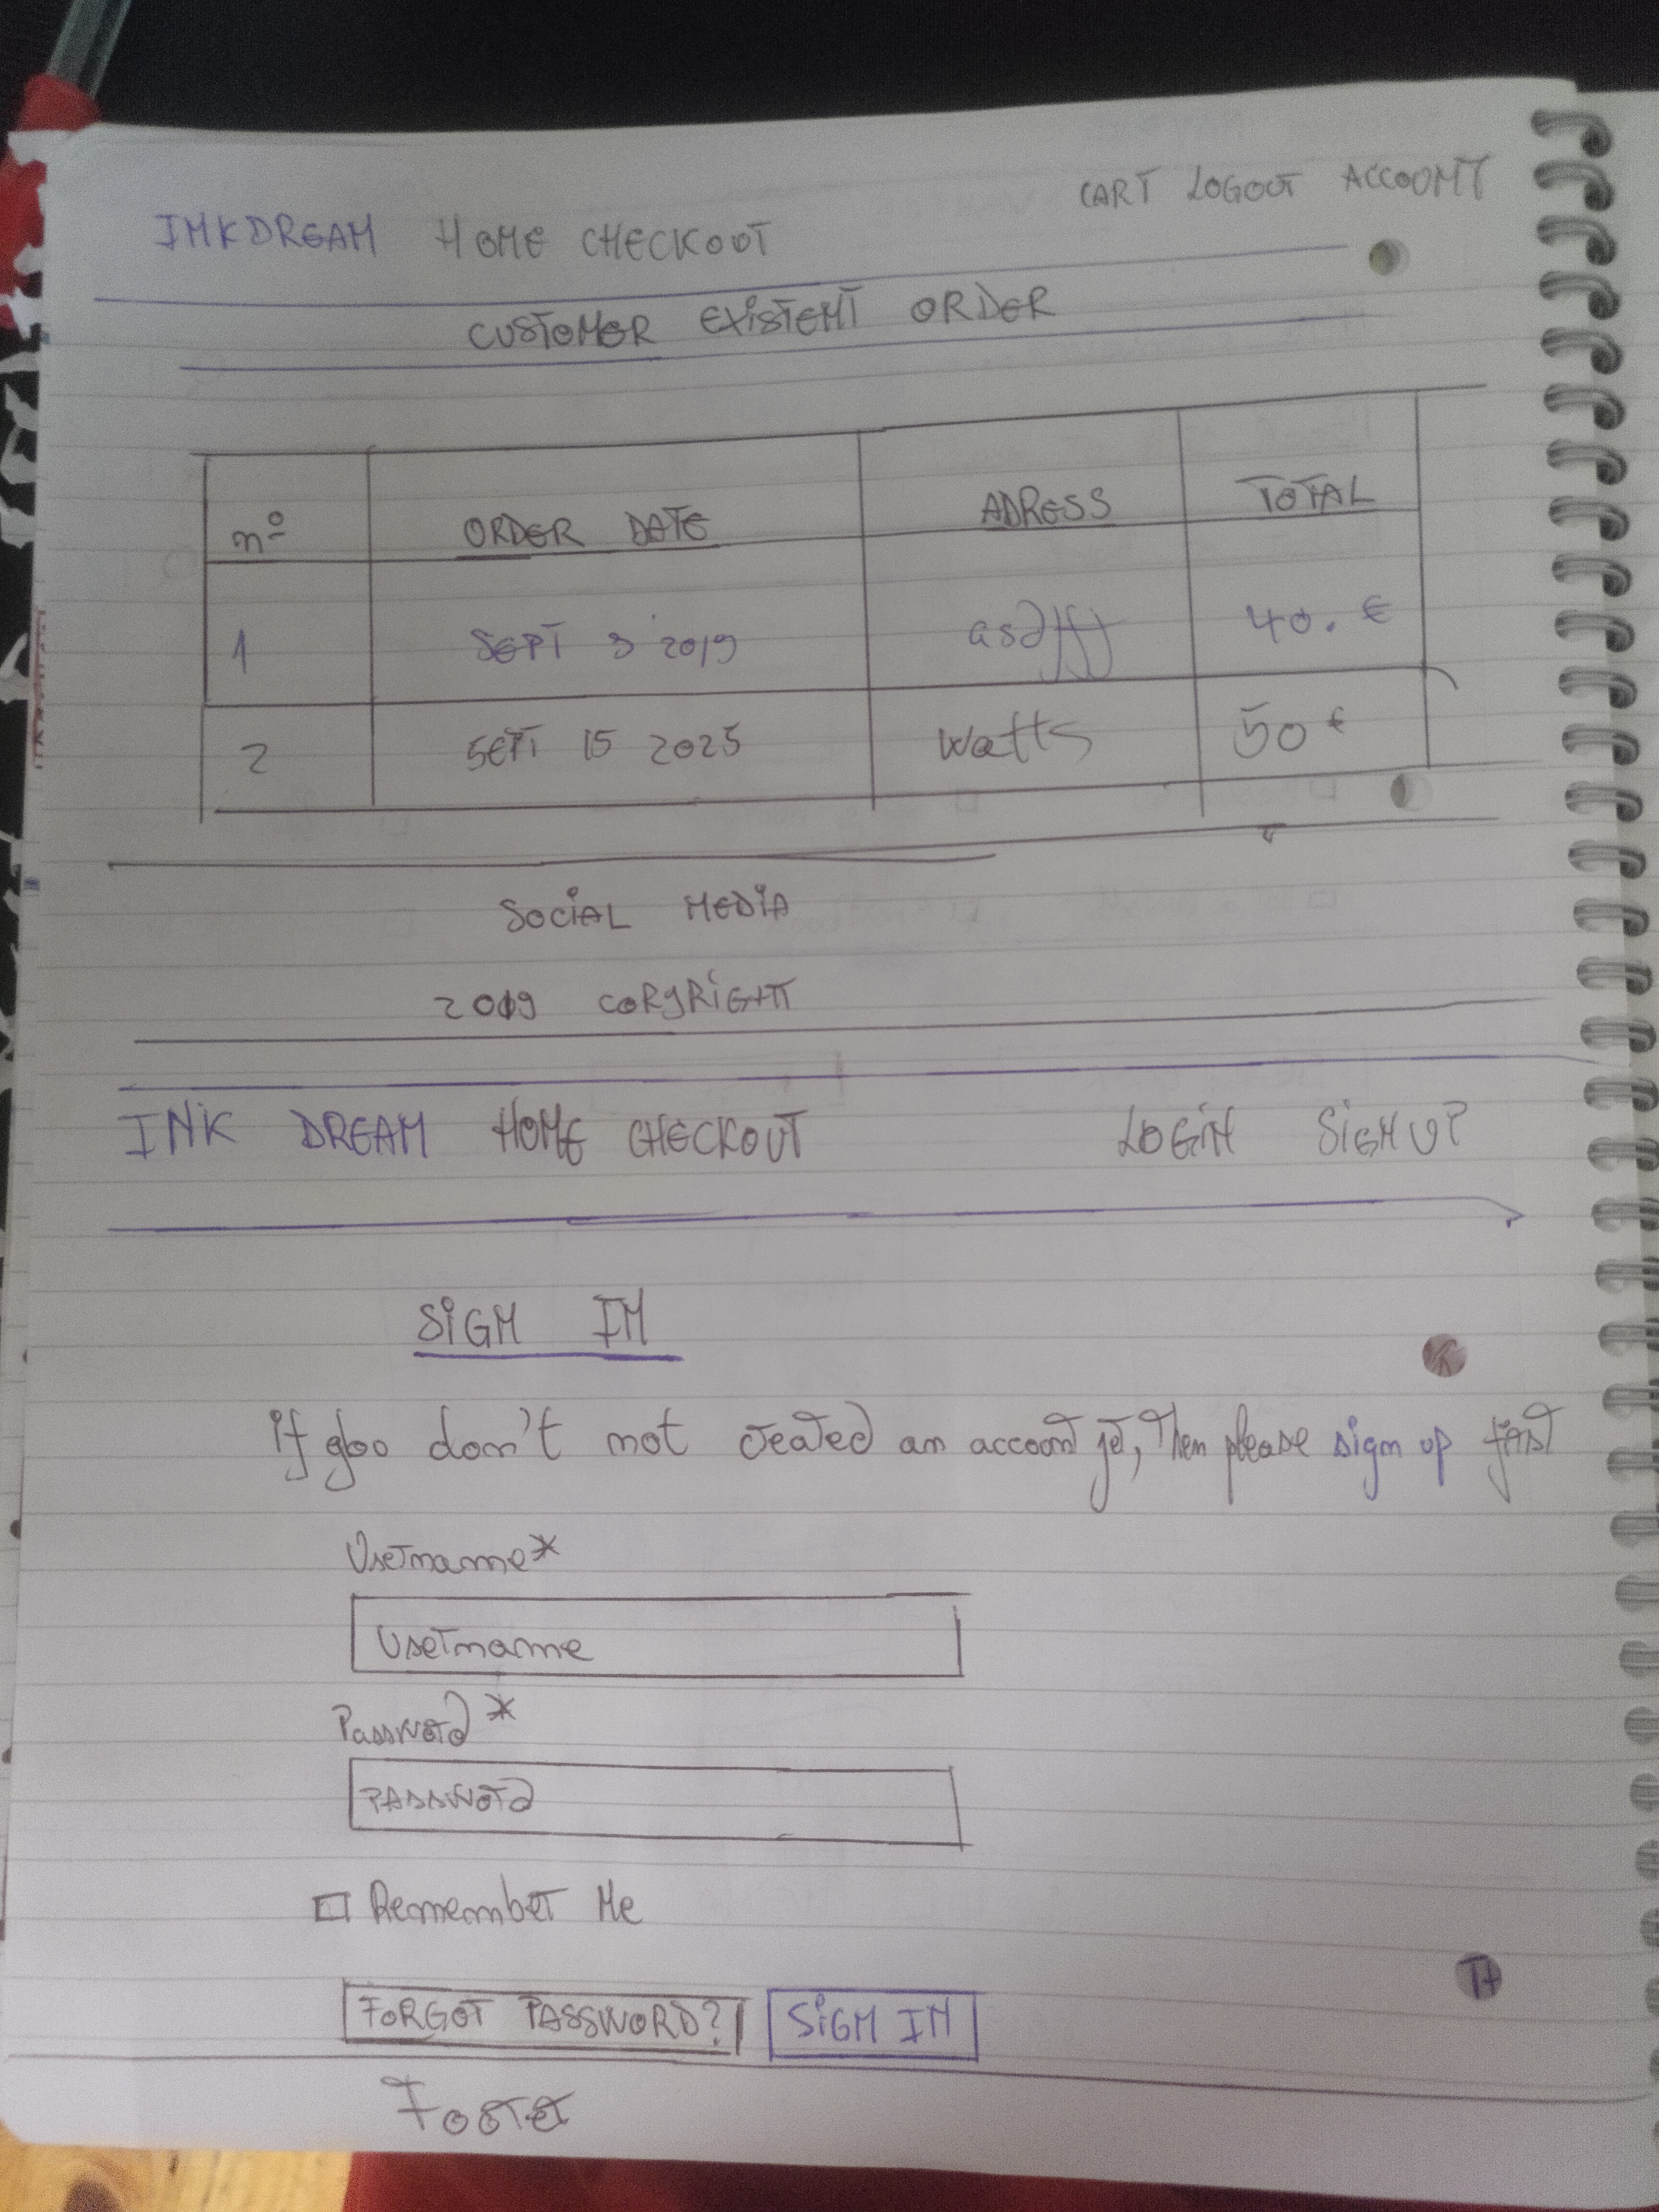 CART LOGOUT ACCOUNT
INKDREAM HOME CHECKOUT
CUSTOMER EXISTENT ORDER
nº ORDER DATE ADRESS TOTAL
1 SEPT 3 2019 asdfff 40. €
2 SEPT 15 2025 Watts 50 €
SOCIAL MEDIA
2019 COPYRIGHT
INK DREAM HOME CHECKOUT LOGIN SIGN UP
SIGN IN
if you don't not created an account yet, Then please sign up first
Username*
Username
Password*
PASSWORD
Remember Me
FORGOT PASSWORD? SIGN IN
FOOTER